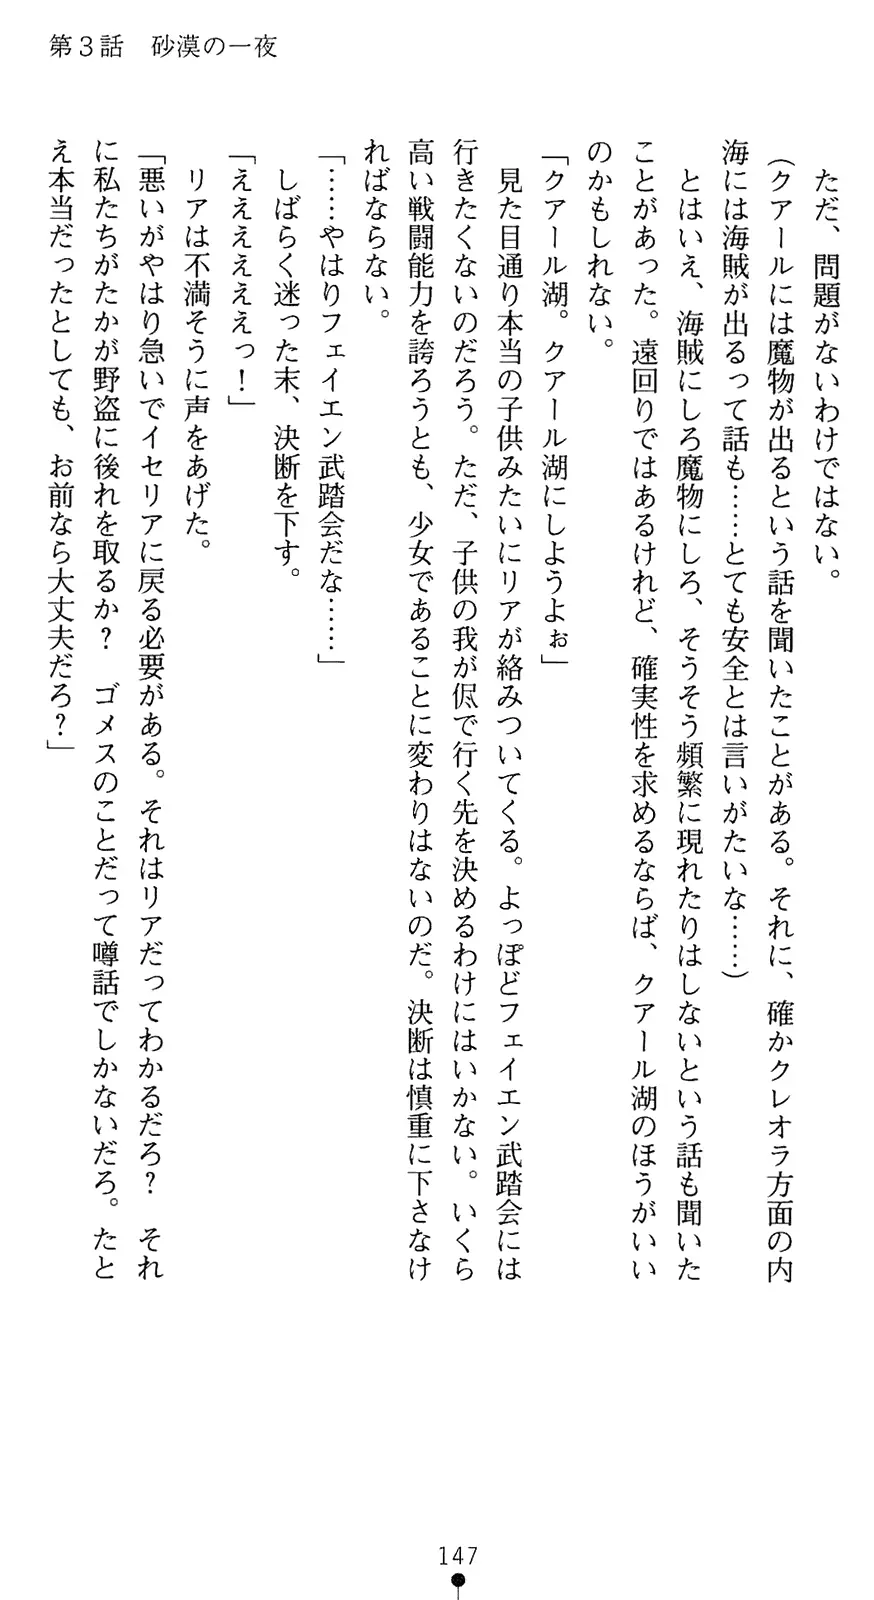 第３話　砂漠の一夜
　ただ、問題がないわけではない。
（クアールには魔物が出るという話を聞いたことがある。それに、確かクレオラ方面の内
海には海賊が出るって話も……とても安全とは言いがたいな……）
　とはいえ、海賊にしろ魔物にしろ、そうそう頻繁に現れたりはしないという話も聞いた
ことがあった。遠回りではあるけれど、確実性を求めるならば、クアール湖のほうがいい
のかもしれない。
「クアール湖。クアール湖にしようよぉ」
　見た目通り本当の子供みたいにリアが絡みついてくる。よっぽどフェイエン武踏会には
行きたくないのだろう。ただ、子供の我が侭で行く先を決めるわけにはいかない。いくら
高い戦闘能力を誇ろうとも、少女であることに変わりはないのだ。決断は慎重に下さなけ
ればならない。
「……やはりフェイエン武踏会だな……」
　しばらく迷った末、決断を下す。
「ええええええっ！」
　リアは不満そうに声をあげた。
「悪いがやはり急いでイセリアに戻る必要がある。それはリアだってわかるだろ？　それ
に私たちがたかが野盗に後れを取るか？　ゴメスのことだって噂話でしかないだろ。たと
え本当だったとしても、お前なら大丈夫だろ？」
147